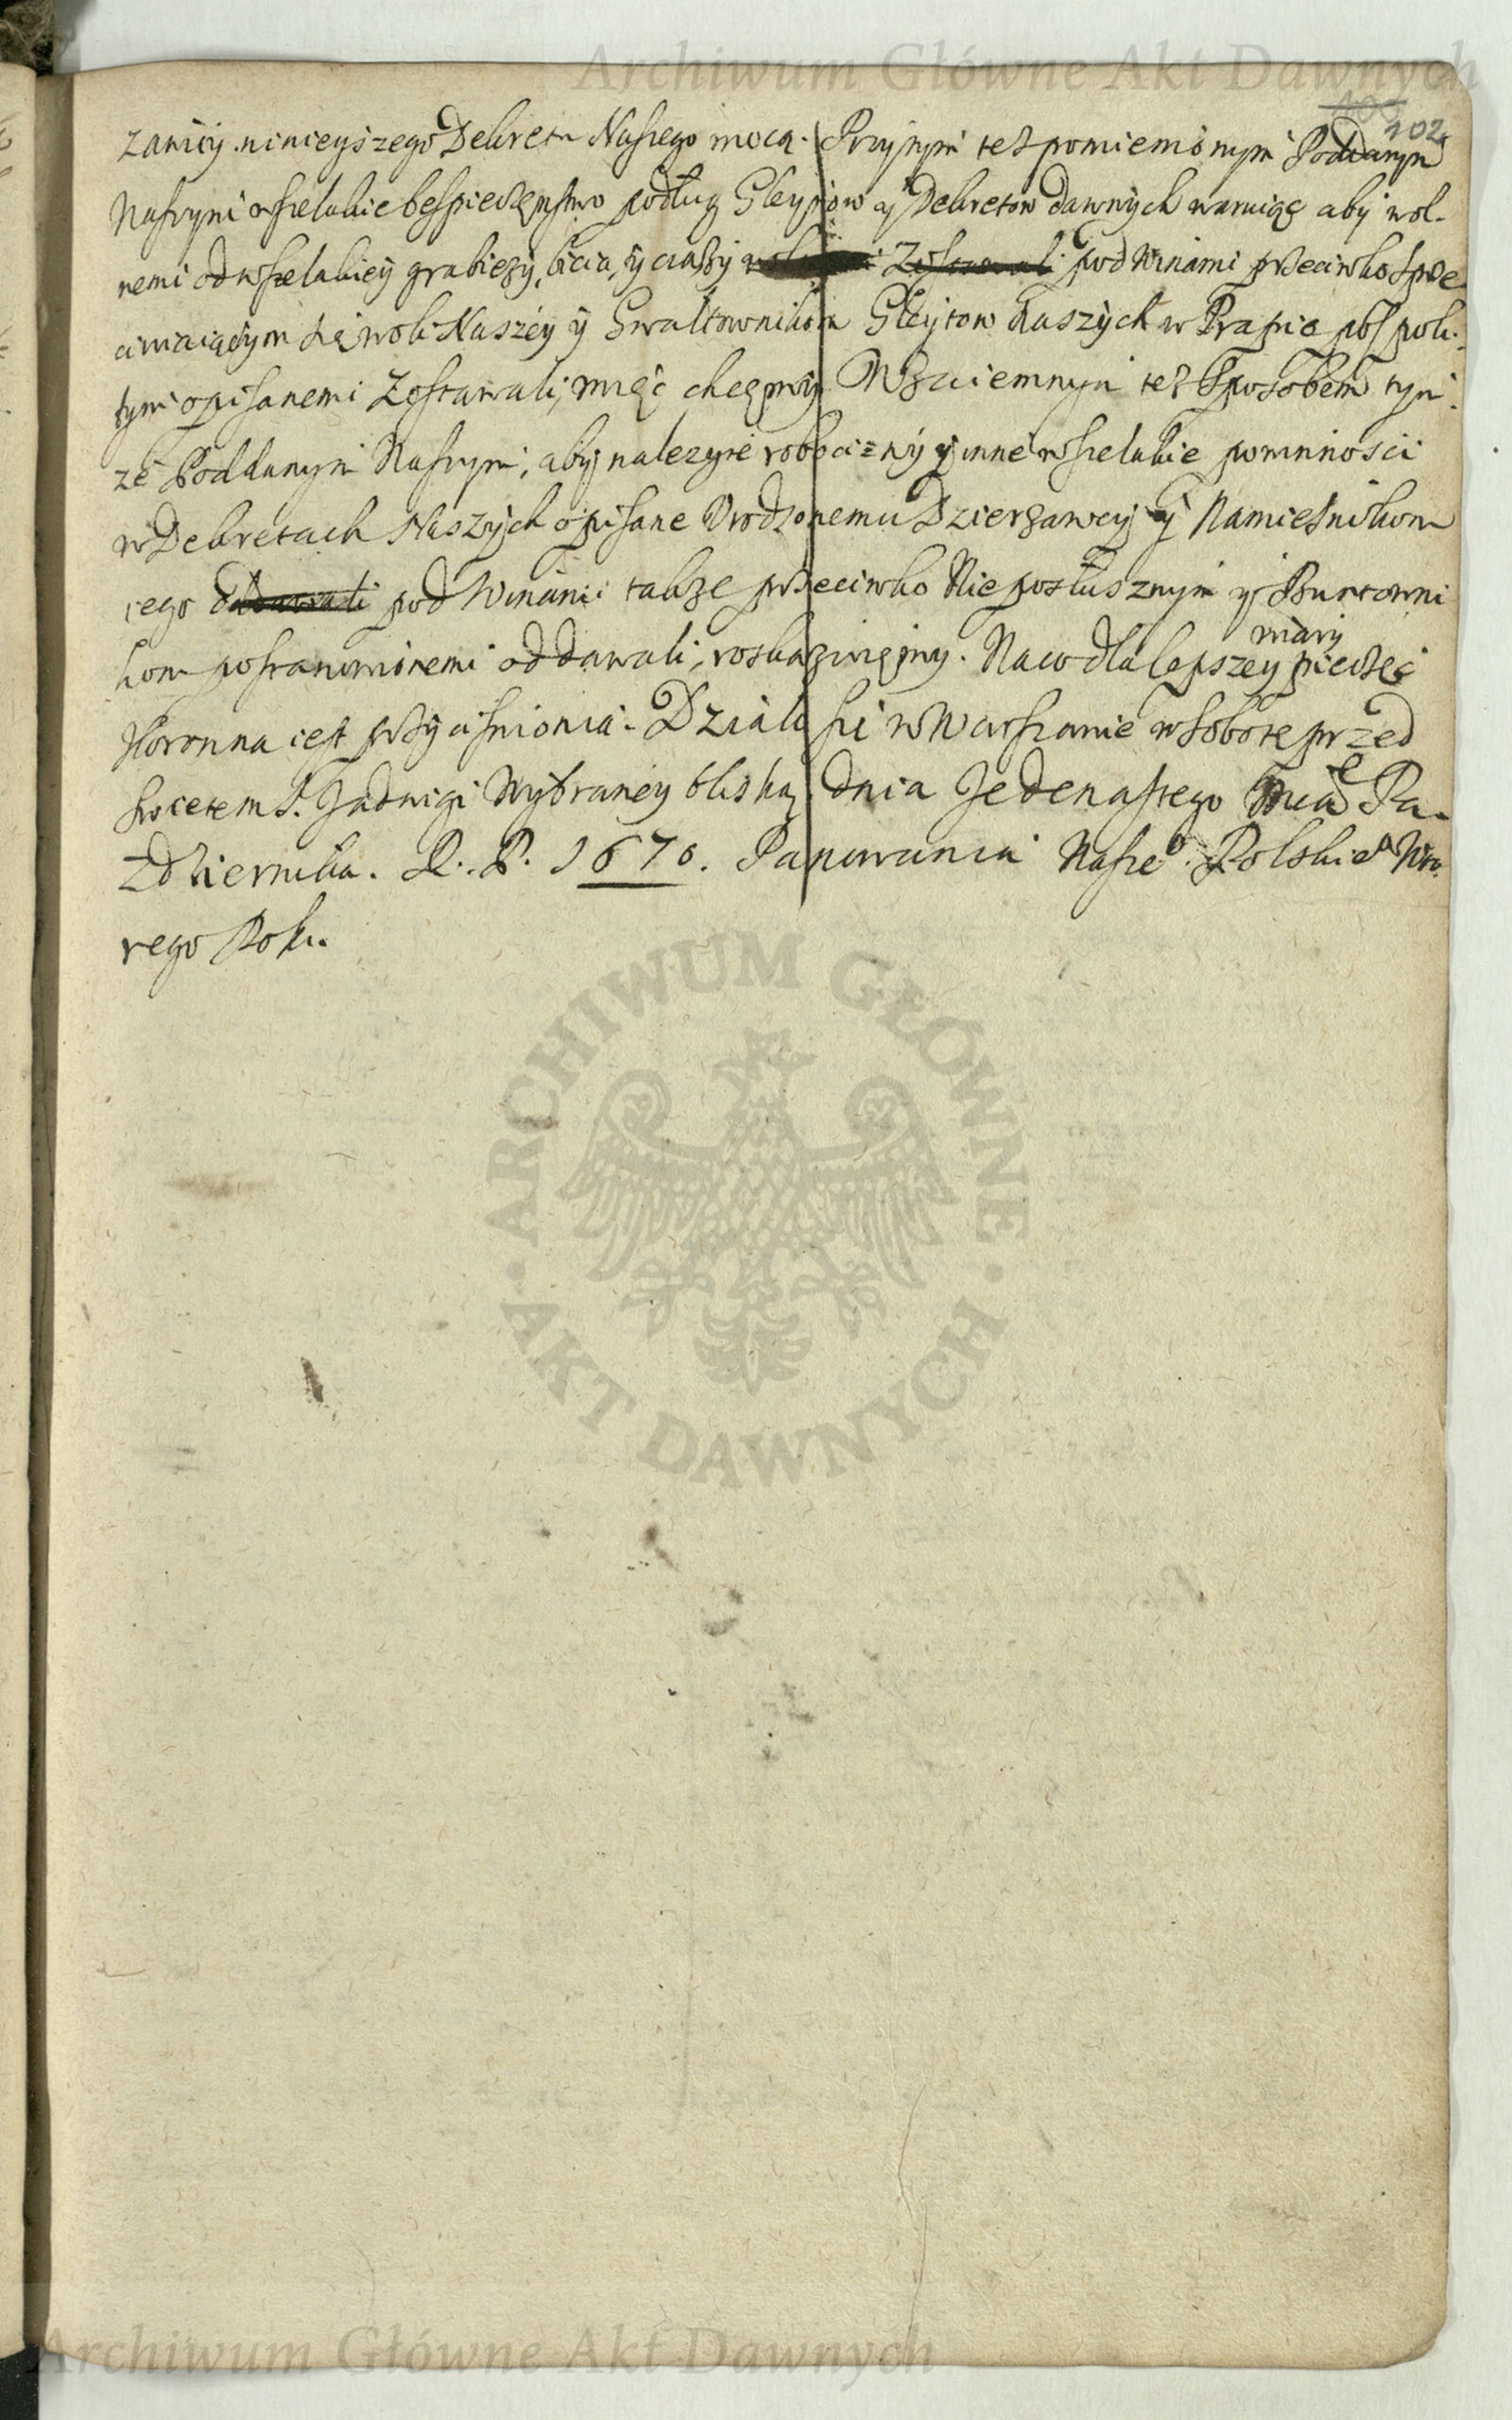 Archiwum Główne Akt Dawnych
102
zaniey ninieyszego Dekretu Naszego mocą. Przytym tesz pomienionym Poddanym
Naszym wszelakie bespieczenstwo podług Gleytow y Dekretow dawnych waruiąc aby wol-
nemi od wszelakiey grabiezy, bicia, y ciąży zostawali pod winami przeciwko sprze
ciwiaiącym się woli Naszey y Gwałtownikom Gleytow Naszych w Prawie posp poli-
tym opisanemi zostawali, mięć chcemy. Wzaiemnym tesz sposobem tym
ze Poddanym Naszym, aby nalezyte robocizny y inne wszelakie powinnosci
w Dekretach Naszych opisane Urodzonemu Dzierzawcy y Namiesnikom
iego oddawali pod winami takze przeciwko Nieposłusznym y Buntowni
kom postanowionemi oddawali, roskazuiemy. Na co dla lepszey wiary pieczęć
Koronna iest przyciśniona. Działo się w Warszawie w sobotę przed
Swietem S. Jadwigi Wybraney bliską dnia Jedenastego Mca Pa-
zdziernika. R. P. 1670. Panowania Nasze° Polskie° Wto-
rego Roku.
ARCHIWUM GŁÓWNE · AKT DAWNYCH ·
Archiwum Główne Akt Dawnych